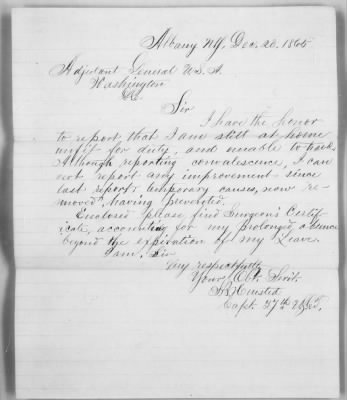 Albany NY, Dec. 20. 1865
Adjutant General U.S.A.
Washington
D.C.
Sir
I have the honor
to report, that I am still at home
unfit for duty, and unable to travel.
Although reporting convalescence, I can
not report any improvement since
last report, temporary causes, now re-
moved, having prevented.
Enclosed please find Surgeon's Certif-
icate, accounting for my prolonged absence
beyond the expiration of my Leave.
I am, Sir
Very respectfully
Your Obt. Servt.
Capt. 27th